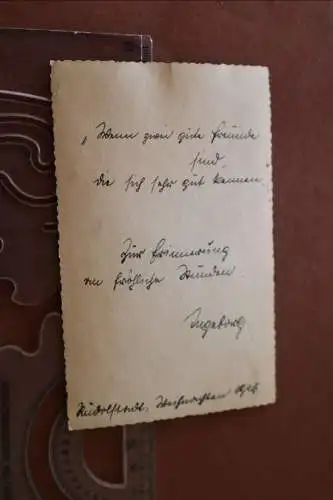 „Wenn zwei gute Freunde
sind,
die sich sehr gut kennen.“
Zur Erinnerung
an fröhliche Stunden.
Ingeborg
Rudolstadt, Weihnachten